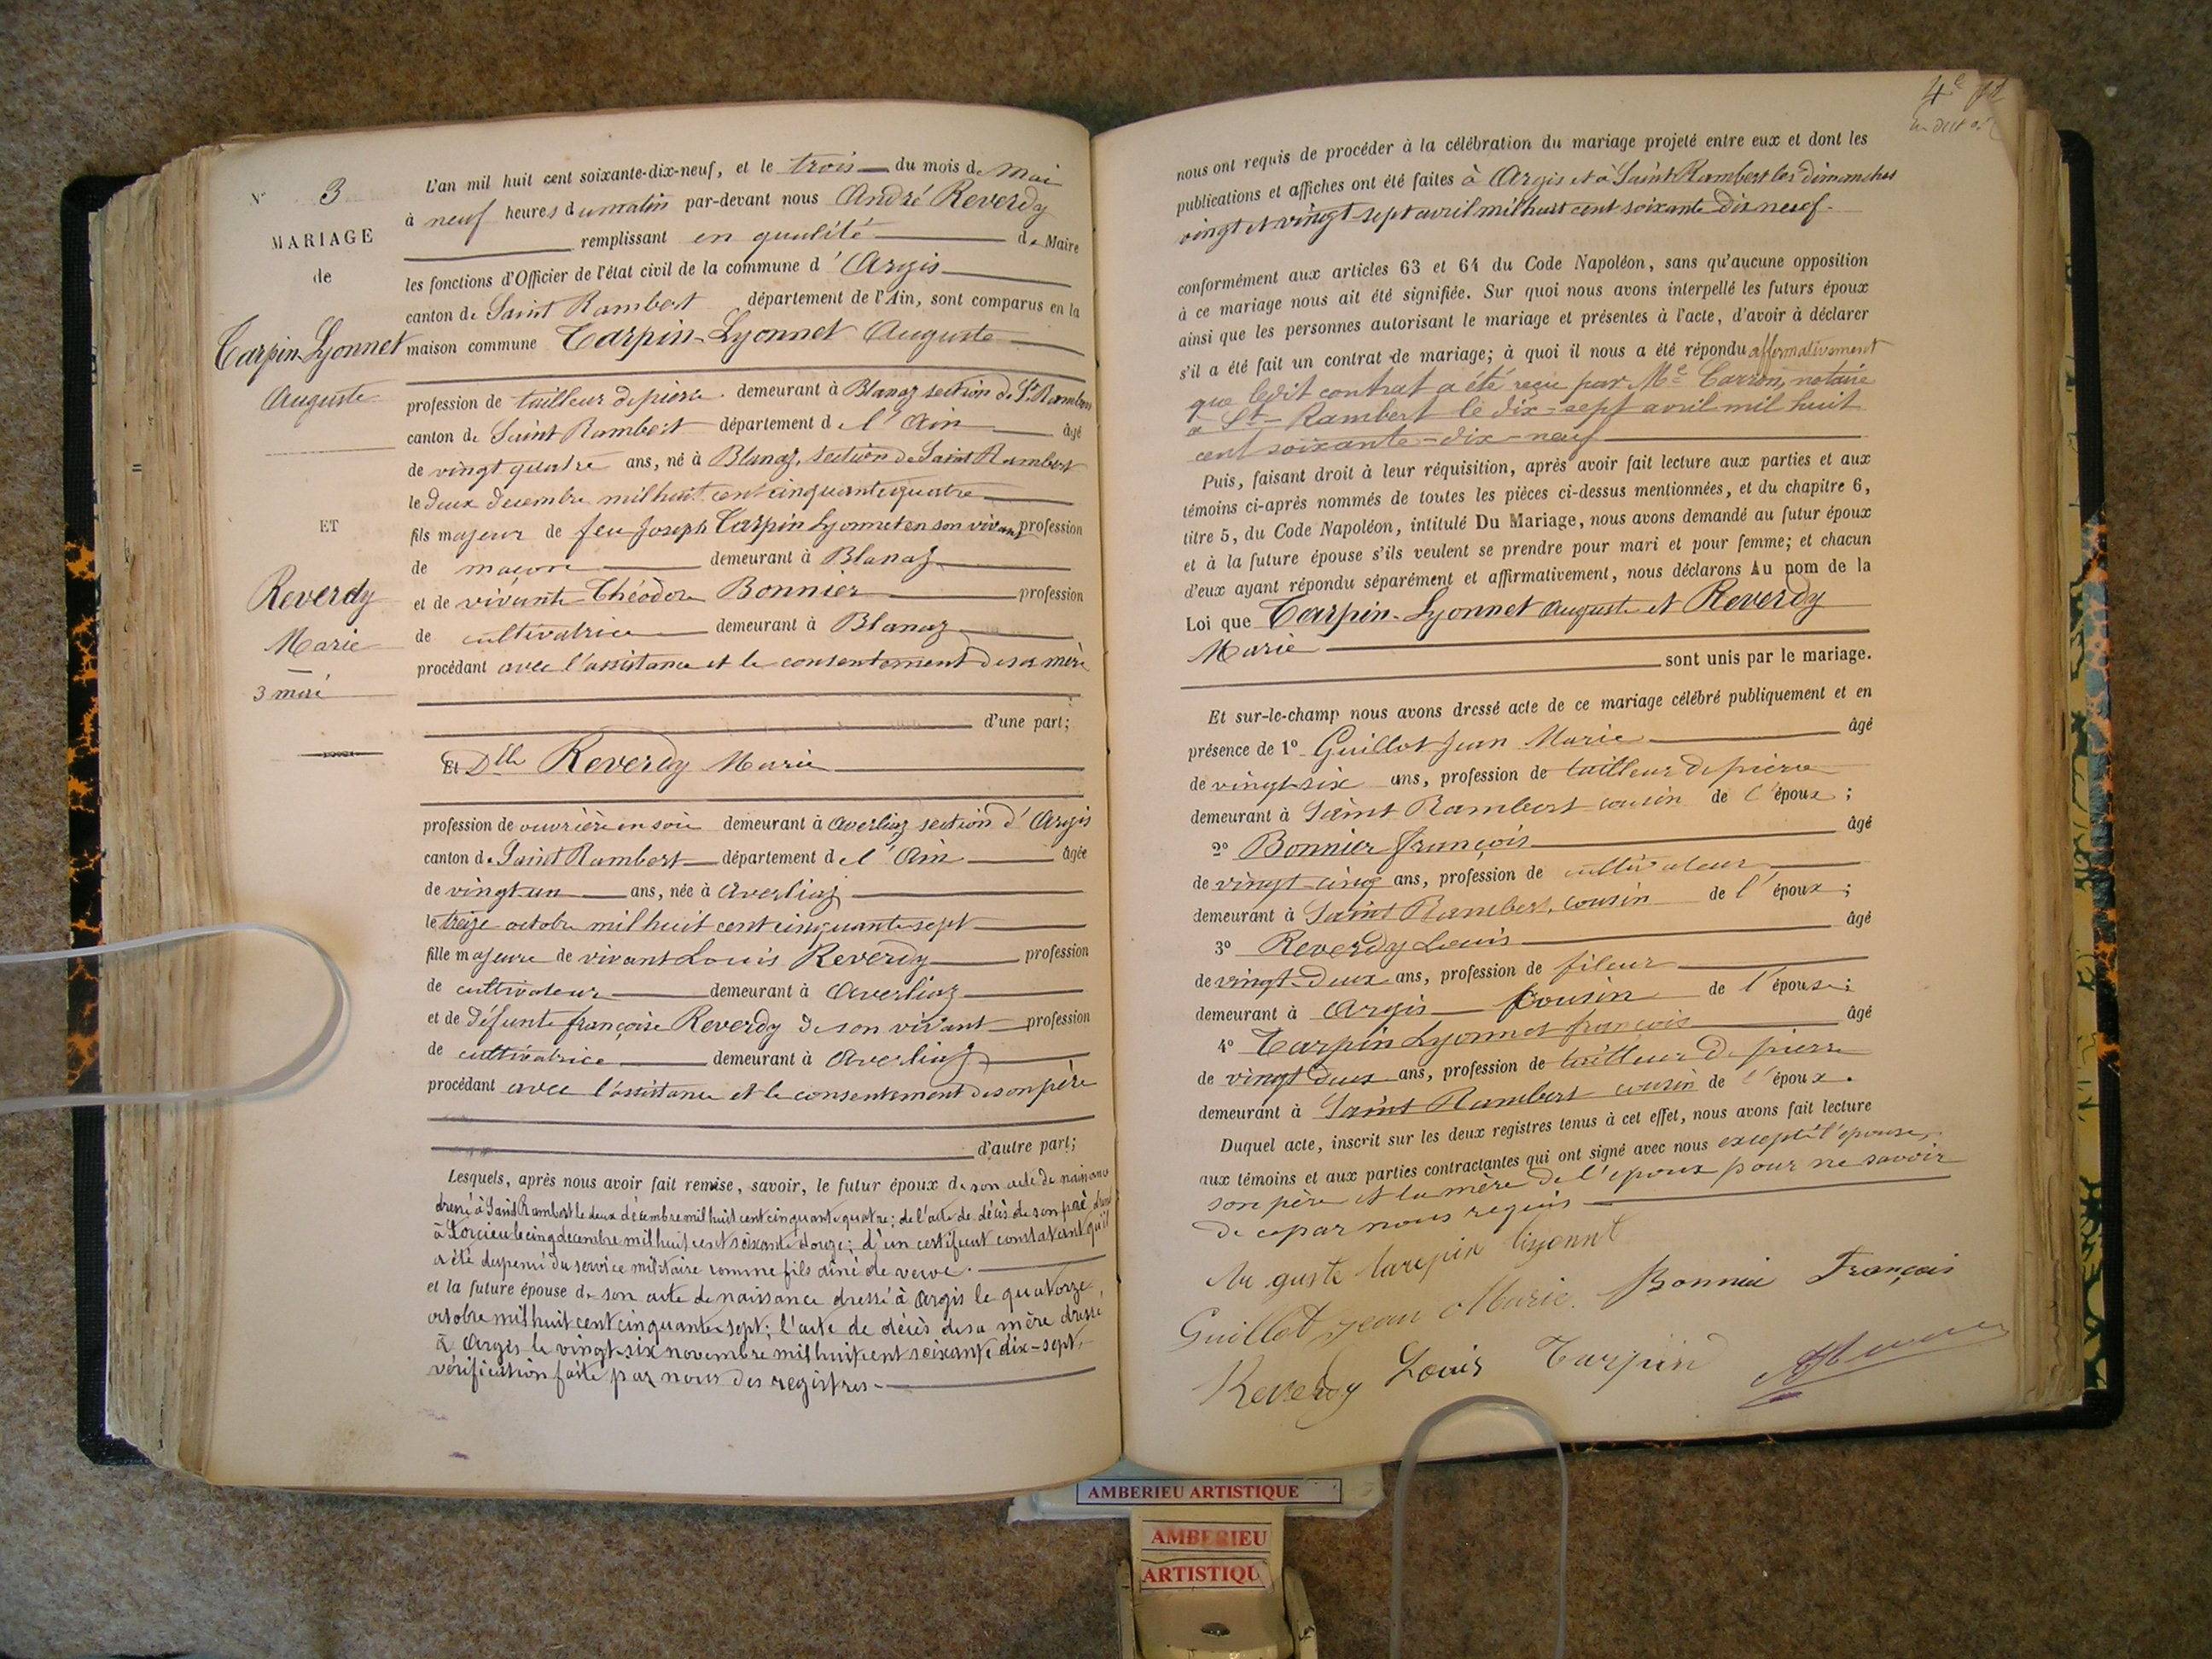 N° 3
MARIAGE
de
Tarpin-Lyonnet
Auguste
ET
Reverdy
Marie
3 mai
L'an mil huit cent soixante-dix-neuf, et le trois du mois de Mai
à neuf heures du matin par-devant nous André Reverdy
remplissant en qualité de Maire
les fonctions d'Officier de l'état civil de la commune d'Argis
canton de Saint Rambert département de l'Ain, sont comparus en la
maison commune Tarpin-Lyonnet Auguste
profession de tailleur de pierre demeurant à Blanaz section de St Rambert
canton de Saint Rambert département de l'Ain âgé
de vingt quatre ans, né à Blanaz, section de Saint Rambert
le deux decembre mil huit cent cinquante quatre
fils majeur de feu Joseph Tarpin Lyonnet en son vivant profession
de maçon demeurant à Blanaz
et de vivante Théodore Bonnier profession
de cultivatrice demeurant à Blanaz
procédant avec l'assistance et le consentement de sa mère
d'une part;
Et Dlle Reverdy Marie
profession de ouvrière en soie demeurant à Averliaz section d'Argis
canton de Saint Rambert département de l'Ain âgée
de vingt un ans, née à Averliaz
le treize octobre mil huit cent cinquante sept
fille majeure de vivant Louis Reverdy profession
de cultivateur demeurant à Averliaz
et de défunte françoise Reverdy de son vivant profession
de cultivatrice demeurant à Averliaz
procédant avec l'assistance et le consentement de son père
d'autre part;
Lesquels, après nous avoir fait remise, savoir, le futur époux de son acte de naissance
dressé à Saint Rambert le deux décembre mil huit cent cinquante quatre; de l'acte de décès de son père dressé
à le cinq decembre mil huit cent soixante douze; d'un certificat constatant qu'il
a été dispensé du service militaire comme fils aîné de veuve.
et la future épouse de son acte de naissance dressé à Argis le quatorze
octobre mil huit cent cinquante sept; l'acte de décès de sa mère dressé
à Argis le vingt-six novembre mil huit cent soixante dix-sept,
vérification faite par nous des registres.
4e
nous ont requis de procéder à la célébration du mariage projeté entre eux et dont les
publications et affiches ont été faites à Argis et à Saint Rambert les dimanches
vingt et vingt-sept avril mil huit cent soixante dix neuf.
conformément aux articles 63 et 64 du Code Napoléon, sans qu'aucune opposition
à ce mariage nous ait été signifiée. Sur quoi nous avons interpellé les futurs époux
ainsi que les personnes autorisant le mariage et présentes à l'acte, d'avoir à déclarer
s'il a été fait un contrat de mariage; à quoi il nous a été répondu affirmativement
que ledit contrat a été reçu par Me Carron, notaire
à St-Rambert le dix-sept avril mil huit
cent soixante-dix-neuf
Puis, faisant droit à leur réquisition, après avoir fait lecture aux parties et aux
témoins ci-après nommés de toutes les pièces ci-dessus mentionnées, et du chapitre 6,
titre 5, du Code Napoléon, intitulé Du Mariage, nous avons demandé au futur époux
et à la future épouse s'ils veulent se prendre pour mari et pour femme; et chacun
d'eux ayant répondu séparément et affirmativement, nous déclarons Au nom de la
Loi que Tarpin-Lyonnet Auguste et Reverdy
Marie
sont unis par le mariage.
Et sur-le-champ nous avons dressé acte de ce mariage célébré publiquement et en
présence de 1° Guillot Jean Marie âgé
de vingt-six ans, profession de tailleur de pierre
demeurant à Saint Rambert cousin de l'époux;
2° Bonnier françois âgé
de vingt-cinq ans, profession de cultivateur
demeurant à Saint Rambert, cousin de l'époux;
3° Reverdy Louis âgé
de vingt-deux ans, profession de fileur
demeurant à Argis Cousin de l'épouse;
4° Tarpin Lyonnet françois âgé
de vingt deux ans, profession de tailleur de pierre
demeurant à Saint Rambert cousin de l'époux.
Duquel acte, inscrit sur les deux registres tenus à cet effet, nous avons fait lecture
aux témoins et aux parties contractantes qui ont signé avec nous excepté l'épouse,
son père et la mère de l'époux pour ne savoir
de ce par nous requis
Auguste tarpin liyonnt
Guillot Jean Marie. Bonnier François
Reverdy Louis Tarpin
AMBERIEU ARTISTIQUE
AMBERIEU
ARTISTIQU